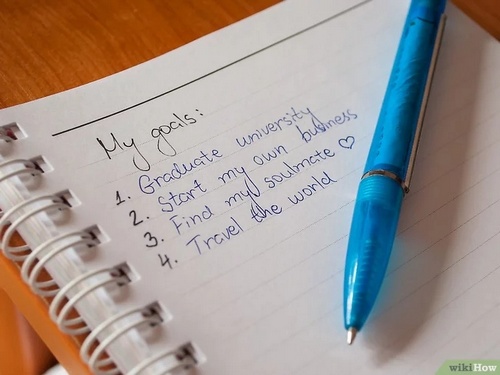 My goals:
1. Graduate university
2. Start my own business
3. Find my soulmate ♡
4. Travel the world
wikiHow